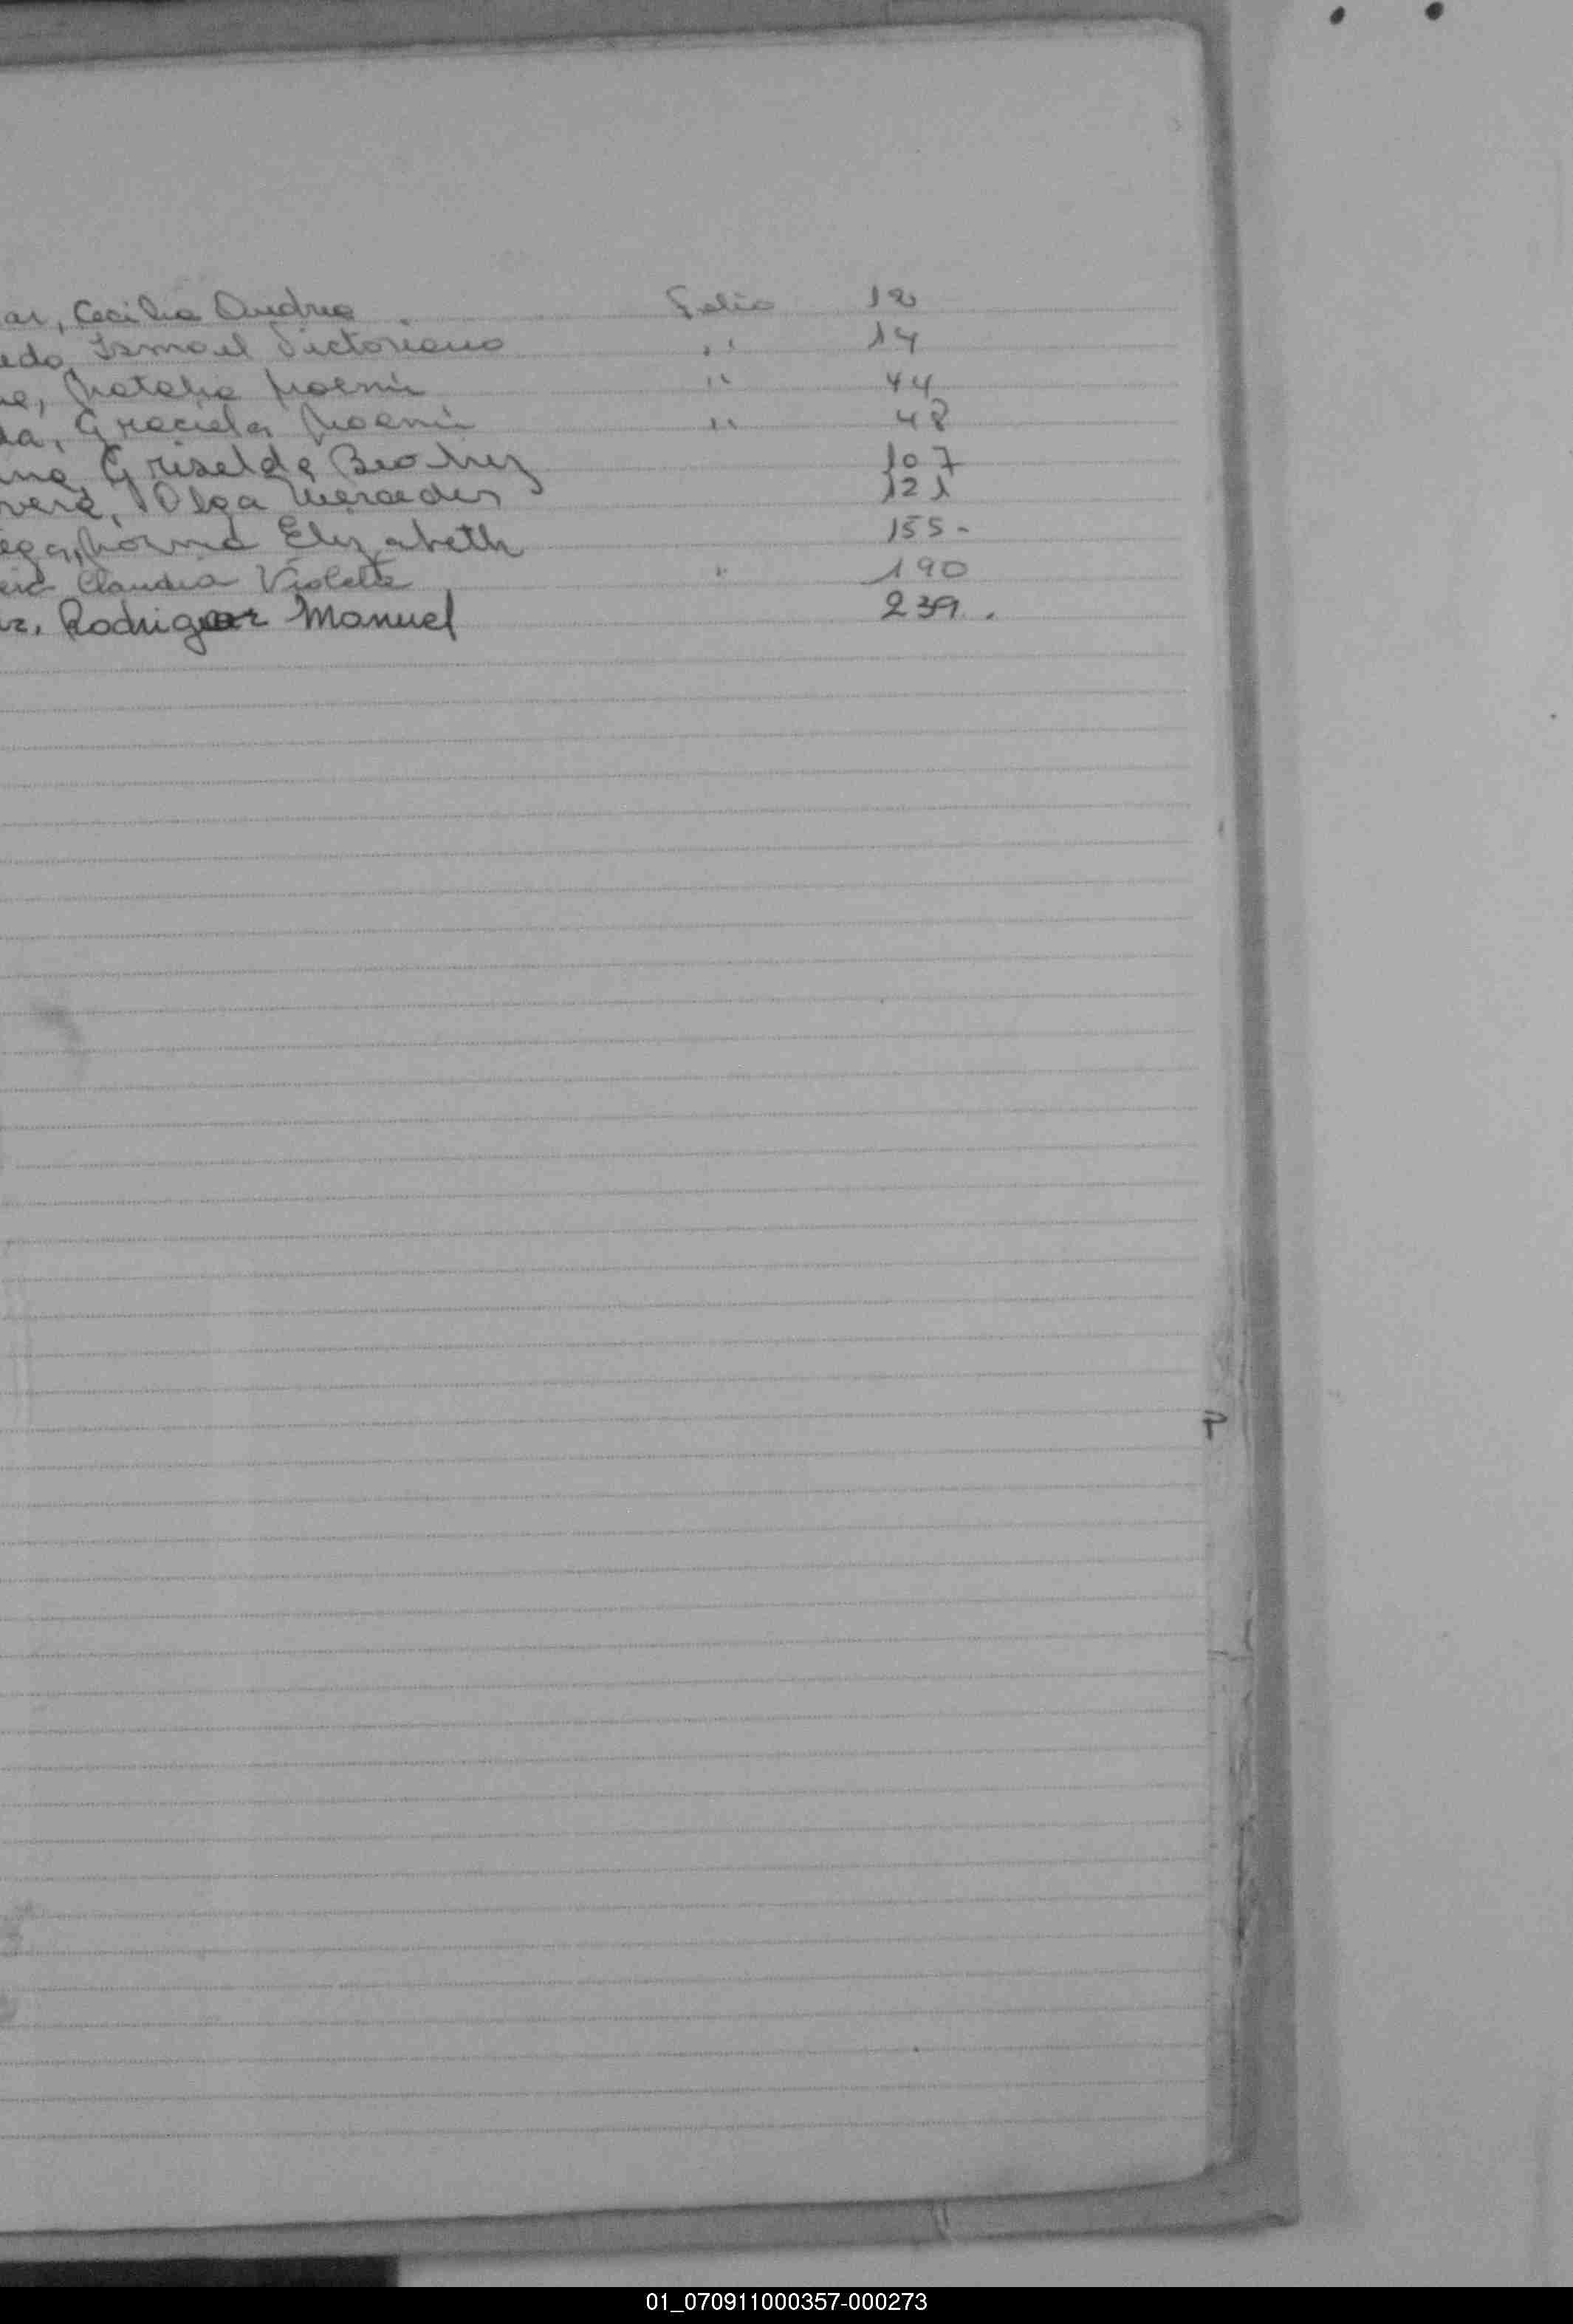 ar, Cecilia Andrea Folio 12
edo, Ismael Victoriano " 14
ne, Natalia Noemi " 44
da, Graciela Noemi " 48
na, Griselda Beatriz 107
vera, Olga Mercedes 121
ega, Norma Elizabeth 155-
eira Claudia Violeta " 190
ez, Rodriguez Manuel 239.
P
01_070911000357-000273